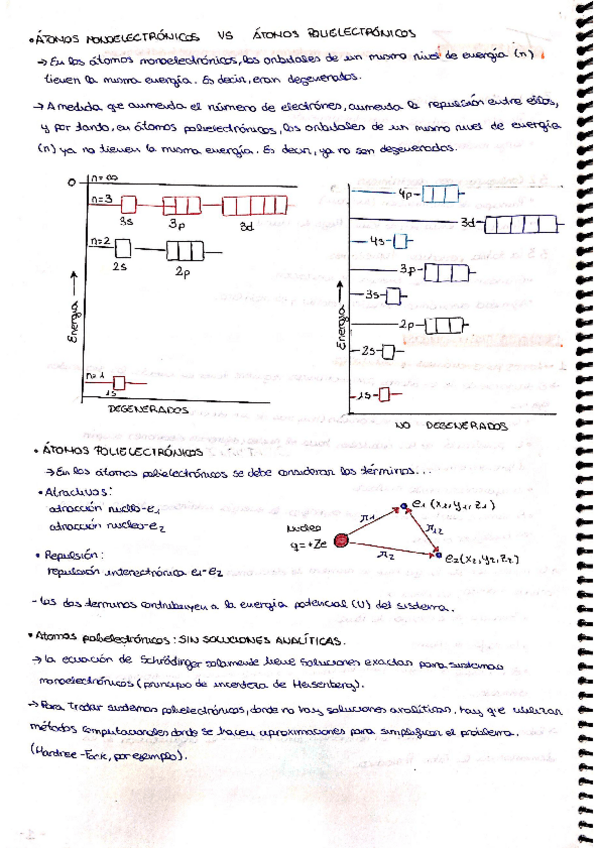 • ÁTOMOS MONOELECTRÓNICOS VS ÁTOMOS POLIELECTRÓNICOS
→ En los átomos monoelectrónicos, los orbitales de un mismo nivel de energía (n)
tienen la misma energía. Es decir, eran degenerados.
→ A medida que aumenta el número de electrones, aumenta la repulsión entre ellos,
y por tanto, en átomos polielectrónicos, los orbitales de un mismo nivel de energía
(n) ya no tienen la misma energía. Es decir, ya no son degenerados.
0 n=∞
n=3
3s 3p 3d
n=2
2s 2p
n=1
1s
Energía →
DEGENERADOS
4p
3d
4s
3p
3s
2p
2s
1s
Energía →
NO DEGENERADOS
• ÁTOMOS POLIELECTRÓNICOS
→ En los átomos polielectrónicos se debe considerar los términos...
• Atractivos:
atracción nucleo-e1
atracción nucleo-e2
• Repulsión:
repulsión interelectrónica e1-e2
Nucleo
q=+Ze
r1
r12
r2
e1 (x1, y1, z1)
e2 (x2, y2, z2)
- Los dos terminos contribuyen a la energía potencial (U) del sistema.
• Átomos polielectrónicos: SIN SOLUCIONES ANALÍTICAS.
→ la ecuación de Schrödinger solamente tiene soluciones exactas para sistemas
monoelectrónicos (principio de incerteza de Heisenberg).
→ Para tratar sistemas polielectrónicos, donde no hay soluciones analíticas. hay que utilizar
métodos computacionales donde se hacen aproximaciones para simplificar el problema.
(Hartree-Fock, por ejemplo).